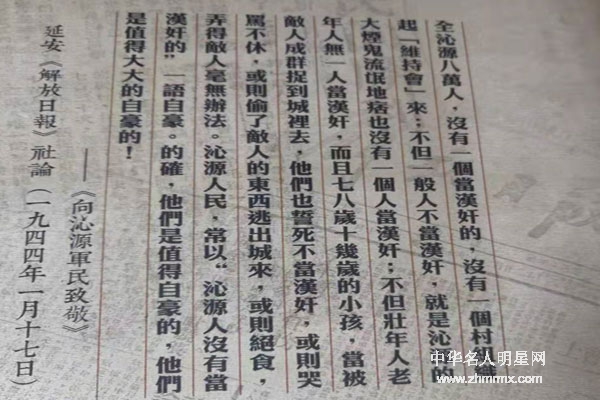 全沁源八萬人，沒有一個當漢奸的，沒有一個村
起「維持會」來；不但一般人不當漢奸，就是沁源的
大煙鬼流氓地痞也沒有一個人當漢奸；不但壯年人老
年人無一人當漢奸，而且七八歲十幾歲的小孩，當被
敵人成群捉到城裡去，他們也誓死不當漢奸，或則哭
罵不休，或則偷了敵人的東西逃出城來，或則絕食，
弄得敵人毫無辦法。沁源人民，常以“沁源人沒有當
漢奸的”一語自豪。的確，他們是值得自豪的，他們
是值得大大的自豪的！
——《向沁源軍民致敬》
延安《解放日報》社論（一九四四年一月十七日）
中华名人明星网
www.zhmrmx.com